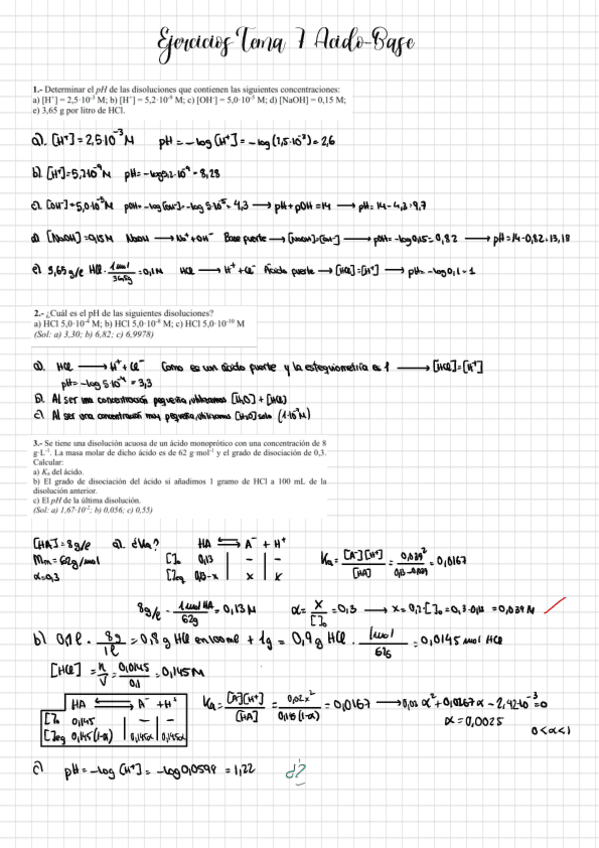 Ejercicios Tema 7 Ácido-Base
1.- Determinar el pH de las disoluciones que contienen las siguientes concentraciones:
a) [H⁺] = 2,5·10⁻³ M; b) [H⁺] = 5,2·10⁻⁹ M; c) [OH⁻] = 5,0·10⁻⁵ M; d) [NaOH] = 0,15 M;
e) 3,65 g por litro de HCl.
a). [H⁺] = 2,5·10⁻³ M pH = -log [H⁺] = -log (2,5·10⁻³) = 2,6
b) [H⁺] = 5,2·10⁻⁹ M pH = -log 5,2·10⁻⁹ = 8,28
c) [OH⁻] = 5,0·10⁻⁵ M pOH = -log [OH⁻] = -log 5·10⁻⁵ = 4,3 → pH + pOH = 14 → pH = 14 - 4,3 = 9,7
d) [NaOH] = 0,15 M NaOH → Na⁺ + OH⁻ Base fuerte → [NaOH] = [OH⁻] → pOH = -log 0,15 = 0,82 → pH = 14 - 0,82 = 13,18
e) 3,65 g/l HCl · 1 mol / 36,5g = 0,1 M HCl → H⁺ + Cl⁻ Ácido fuerte → [HCl] = [H⁺] → pH = -log 0,1 = 1
2.- ¿Cuál es el pH de las siguientes disoluciones?
a) HCl 5,0·10⁻⁴ M; b) HCl 5,0·10⁻⁸ M; c) HCl 5,0·10⁻¹⁰ M
(Sol: a) 3,30; b) 6,82; c) 6,9978)
a). HCl → H⁺ + Cl⁻ Como es un ácido fuerte y la estequiometría es 1 → [HCl] = [H⁺]
pH = -log 5·10⁻⁴ = 3,3
b) Al ser una concentración pequeña, utilizamos [H₂O] + [HCl]
c) Al ser una concentración muy pequeña, utilizamos [H₂O] solo (1·10⁻⁷ M)
3.- Se tiene una disolución acuosa de un ácido monoprótico con una concentración de 8
g·L⁻¹. La masa molar de dicho ácido es de 62 g mol⁻¹ y el grado de disociación de 0,3.
Calcular:
a) Kₐ del ácido.
b) El grado de disociación del ácido si añadimos 1 gramo de HCl a 100 mL de la
disolución anterior.
c) El pH de la última disolución.
(Sol: a) 1,67·10⁻²; b) 0,056; c) 0,55)
[HA] = 8g/l a). ¿Ka? HA ⇌ A⁻ + H⁺
Mm = 62g/mol [ ]₀ 0,13 - - Ka = [A⁻][H⁺] / [HA] = 0,039² / 0,13 - 0,039 = 0,0167
α = 0,3 [ ]eq 0,13-x x x
8g/l · 1 mol HA / 62g = 0,13 M α = x / [ ]₀ = 0,3 → x = 0,3·[ ]₀ = 0,3·0,13 = 0,039 M
b) 0,1 l · 8g / 1l = 0,8 g HCl en 100 ml + 1g = 0,9 g HCl · 1 mol / 62g = 0,0145 mol HCl
[HCl] = n / V = 0,0145 / 0,1 = 0,145 M
HA ⇌ A⁻ + H⁺ Ka = [A][H⁺] / [HA] = 0,02α² / 0,145(1-α) = 0,0167 → 0,02 α² + 0,0267α - 2,42·10⁻³ = 0
[ ]₀ 0,145 - - α = 0,0025
[ ]eq 0,145(1-α) 0,145α 0,145α 0<α<1
c) pH = -log [H⁺] = -log 0,0599 = 1,22 ¿?